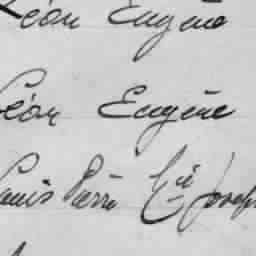 Léon Eugène
Léon Eugène
Louis Pierre Joseph